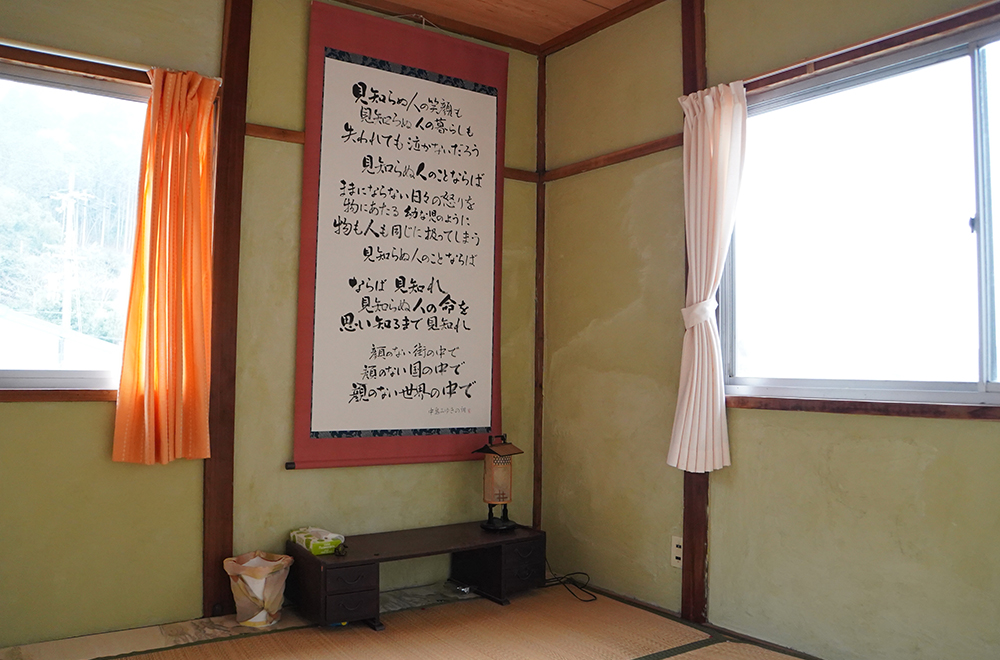 見知らぬ人の笑顔も
見知らぬ人の暮らしも
失われても泣かないだろう
見知らぬ人のことならば
まゝにならない日々の怒りを
物にあたる 幼な児のように
物も人も同じに扱ってしまう
見知らぬ人のことならば
ならば 見知れ
見知らぬ人の命を
思い知るまで見知れ
顔のない街の中で
顔のない国の中で
顔のない世界の中で